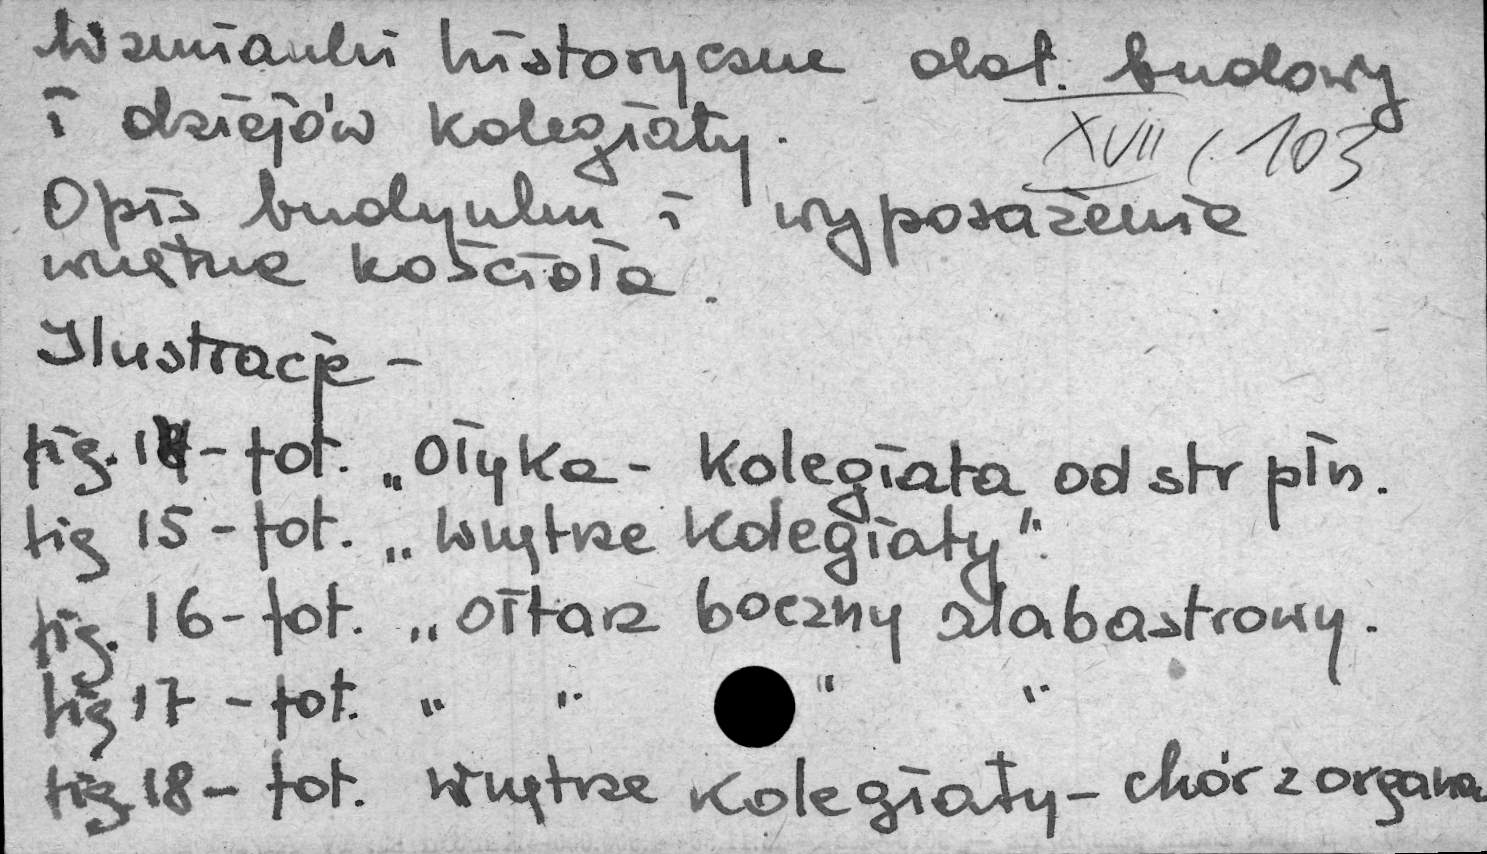 Wzmianki historyczne dot. budowy
i dziejów kolegiaty.
XVII / 103
Opis budynku i wyposażenie
wnętrze kościoła.
Ilustracje -
fig. 14 - fot. „Ołyka - Kolegiata od str płn.
fig 15 - fot. „Wnętrze Kolegiaty".
fig. 16 - fot. „Ołtarz boczny alabastrowy.
fig 17 - fot. „ " " "
fig 18 - fot. Wnętrze Kolegiaty - chór z organa